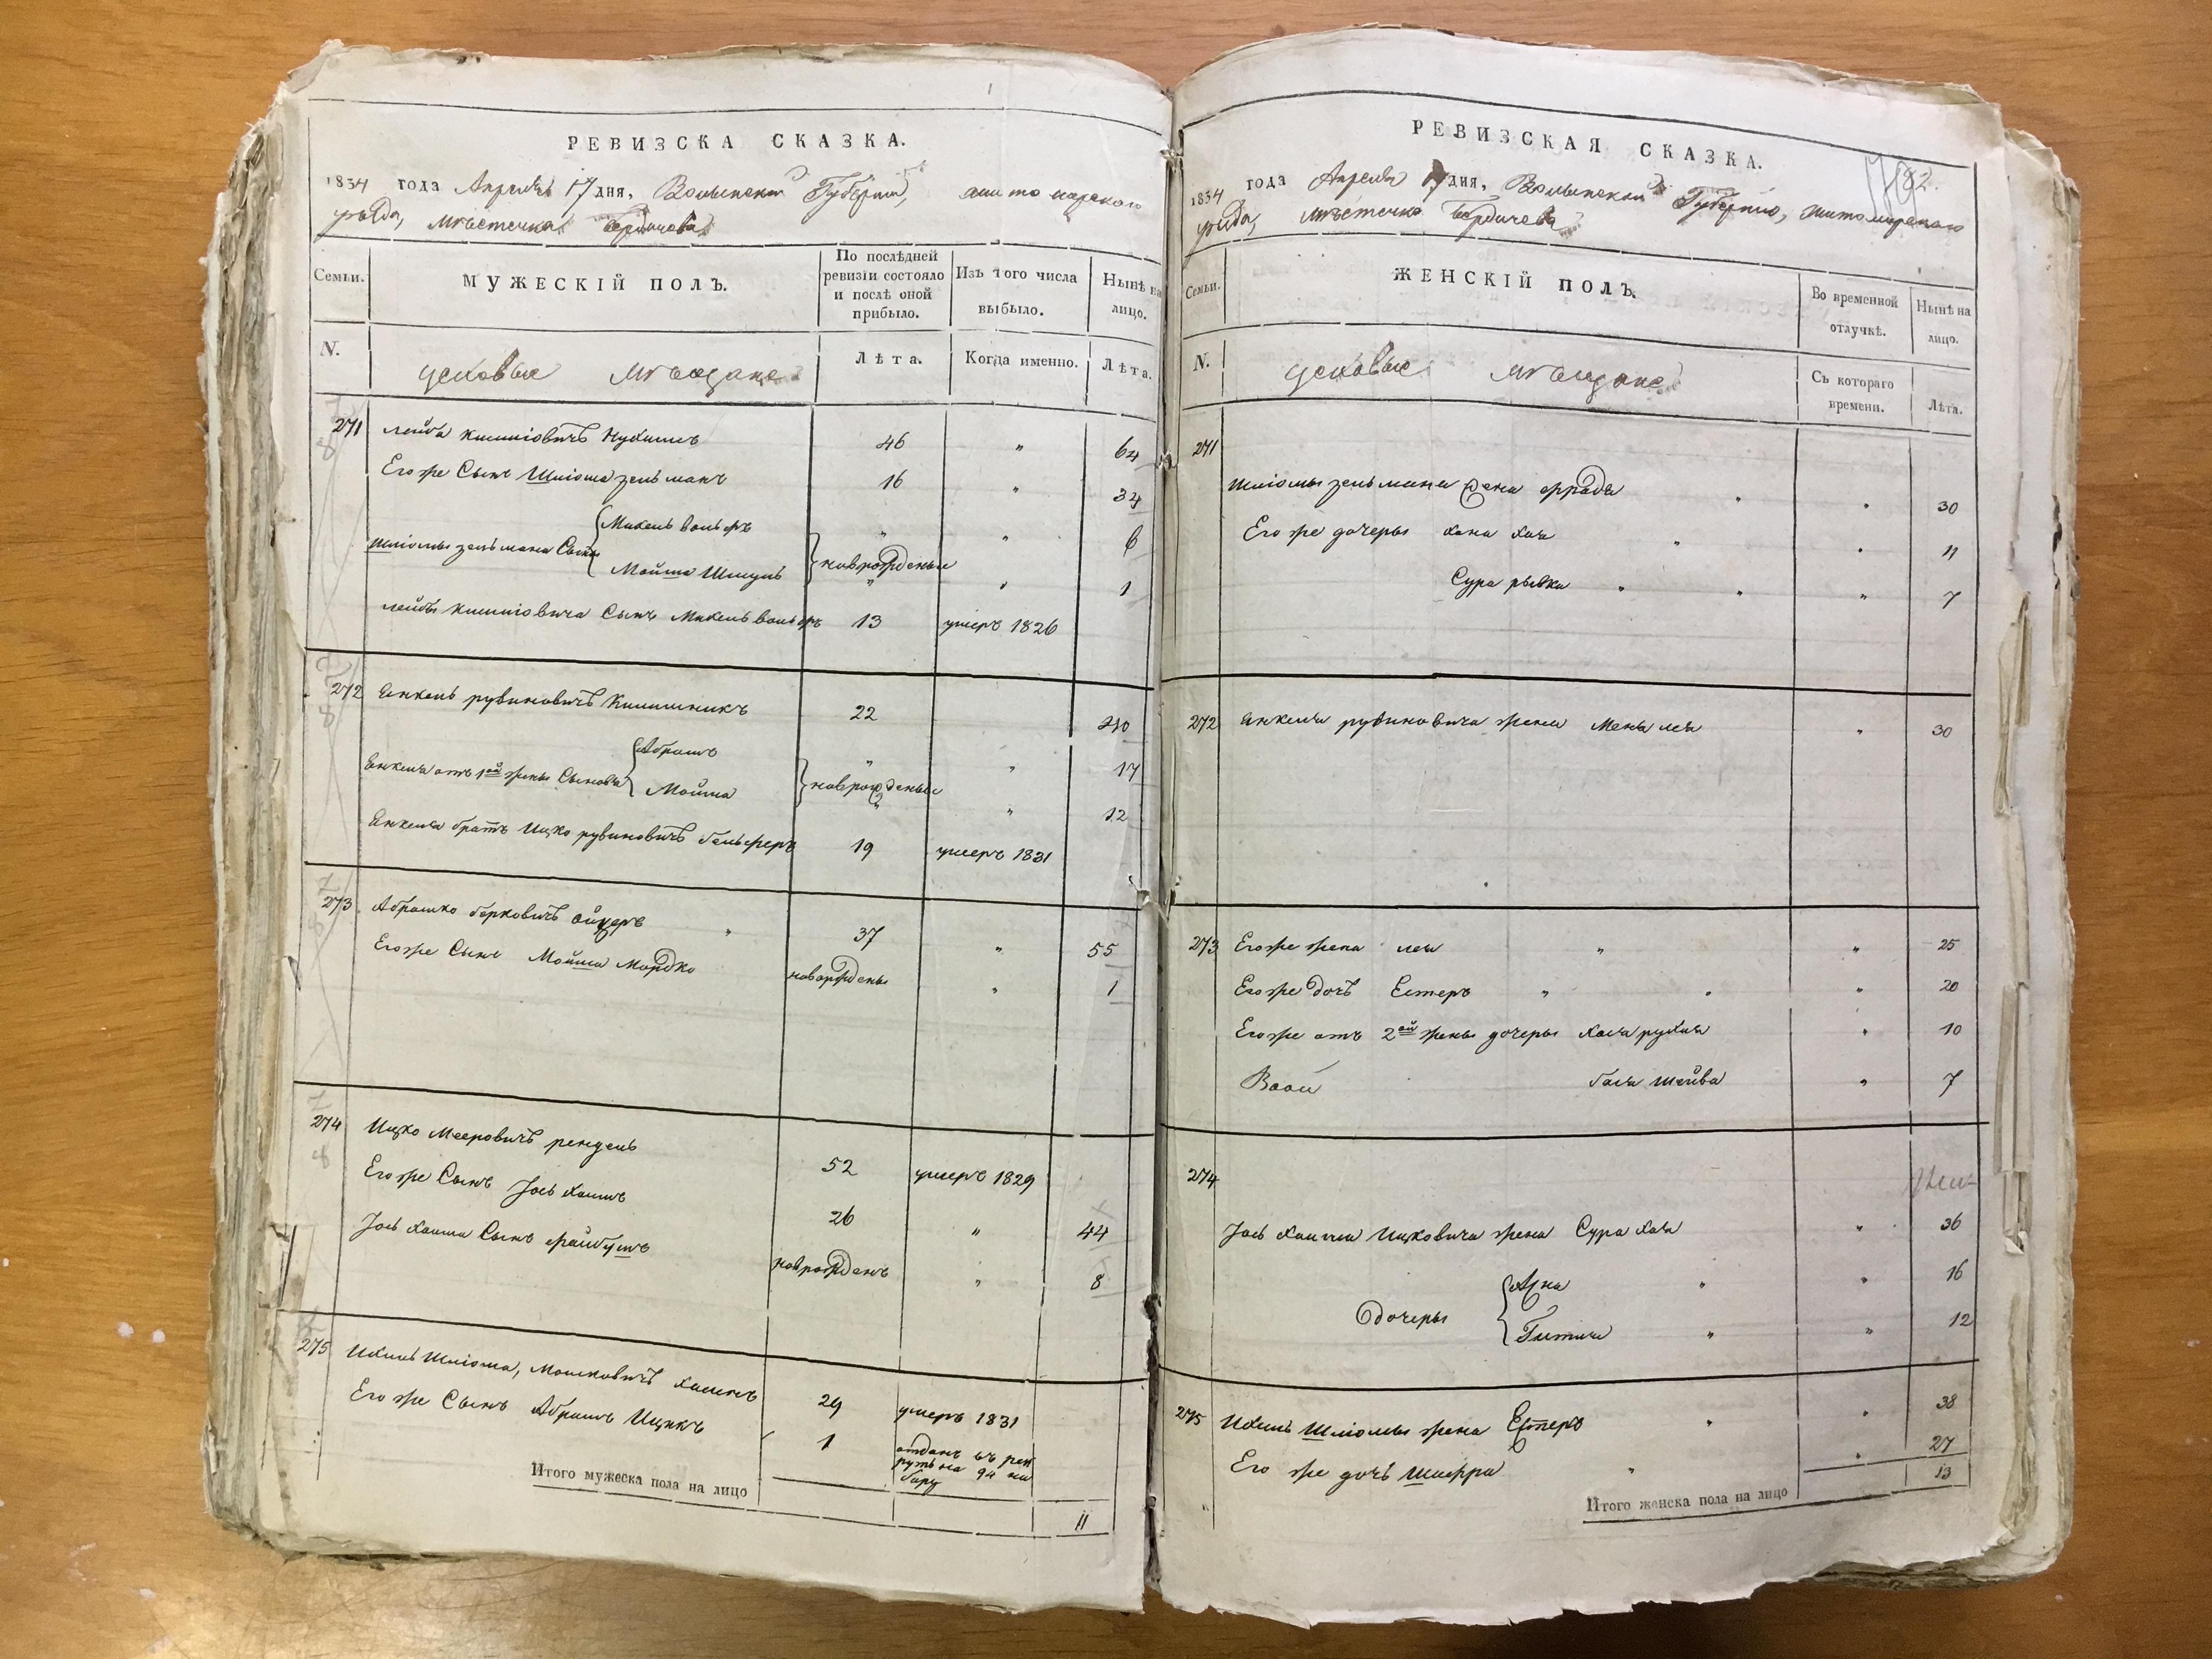 РЕВИЗСКА СКАЗКА.
1834 года Апреля 17 дня, Волынской Губернии, житомирскаго
уезда, мѣстечка Бердичева
Семьи.
МУЖЕСКІЙ ПОЛЪ.
По послѣдней ревизіи состояло и послѣ оной прибыло.
Изъ того числа выбыло.
Нынѣ на лицо.
N.
цеховые мѣщане
Лѣта.
Когда именно.
Лѣта.
271 Лейба Кишіовичъ 46 " 64
Его же Сынъ Шліома зельманъ 16 " 34
Шліомы зельмана Сыны Михель вольфъ " " 6
Мойша Шмуль новрожденые " 1
лейбы Кишіовича Сынъ Михель вольфъ 13 умеръ 1826
272 Янкель рувиновичъ Кишникъ 22 40
Янкеля отъ 1ой жены Сыновья Абрамъ " " 17
Мойша новрожденые " 12
Янкеля братъ Ицко рувиновичъ 19 умеръ 1831
273 Абрамко берковичъ 37 " 55
Его же Сынъ Мойша Мордко новорждены " 1
274 Ицко Мееровичъ рендель 52 умеръ 1829
Его же Сынъ Іось хаимъ 26 " 44
Іось хаима Сынъ файбушъ новрожденъ " 8
275 Ихиль Шліома, Мошковичъ 29 умеръ 1831
Его же Сынъ Абрамъ Ицикъ 1 отданъ въ рек
руты на 94 на
бору
Итого мужеска пола на лицо 11
РЕВИЗСКАЯ СКАЗКА.
182.
1834 года Апреля 17 дня, Волынской Губерніи, житомирскаго
уезда, мѣстечка Бердичева
Семьи.
ЖЕНСКІЙ ПОЛЪ.
Во временной отлучкѣ.
Нынѣ на лицо.
N.
цеховые мѣщане
Съ котораго времени.
Лѣта.
271
Шліомы зельмана жена фрада " " 30
Его же дочеры хана хая " " 11
Сура рывка " " " 7
272 Янкеля рувиновича жена Меня лея " 30
273 Его же жена лея " " 25
Его же дочъ Естеръ " " " 20
Его же отъ 2ой жены дочеры хая рухля " 10
бася шейва " 7
274
Іось хаима Ицковича жена Сура хая " 36
дочеры " " 16
Гитля " " 12
275 Ихиль Шліомы жена Естеръ " " 38
Его же дочъ " " 27
Итого женска пола на лицо 13